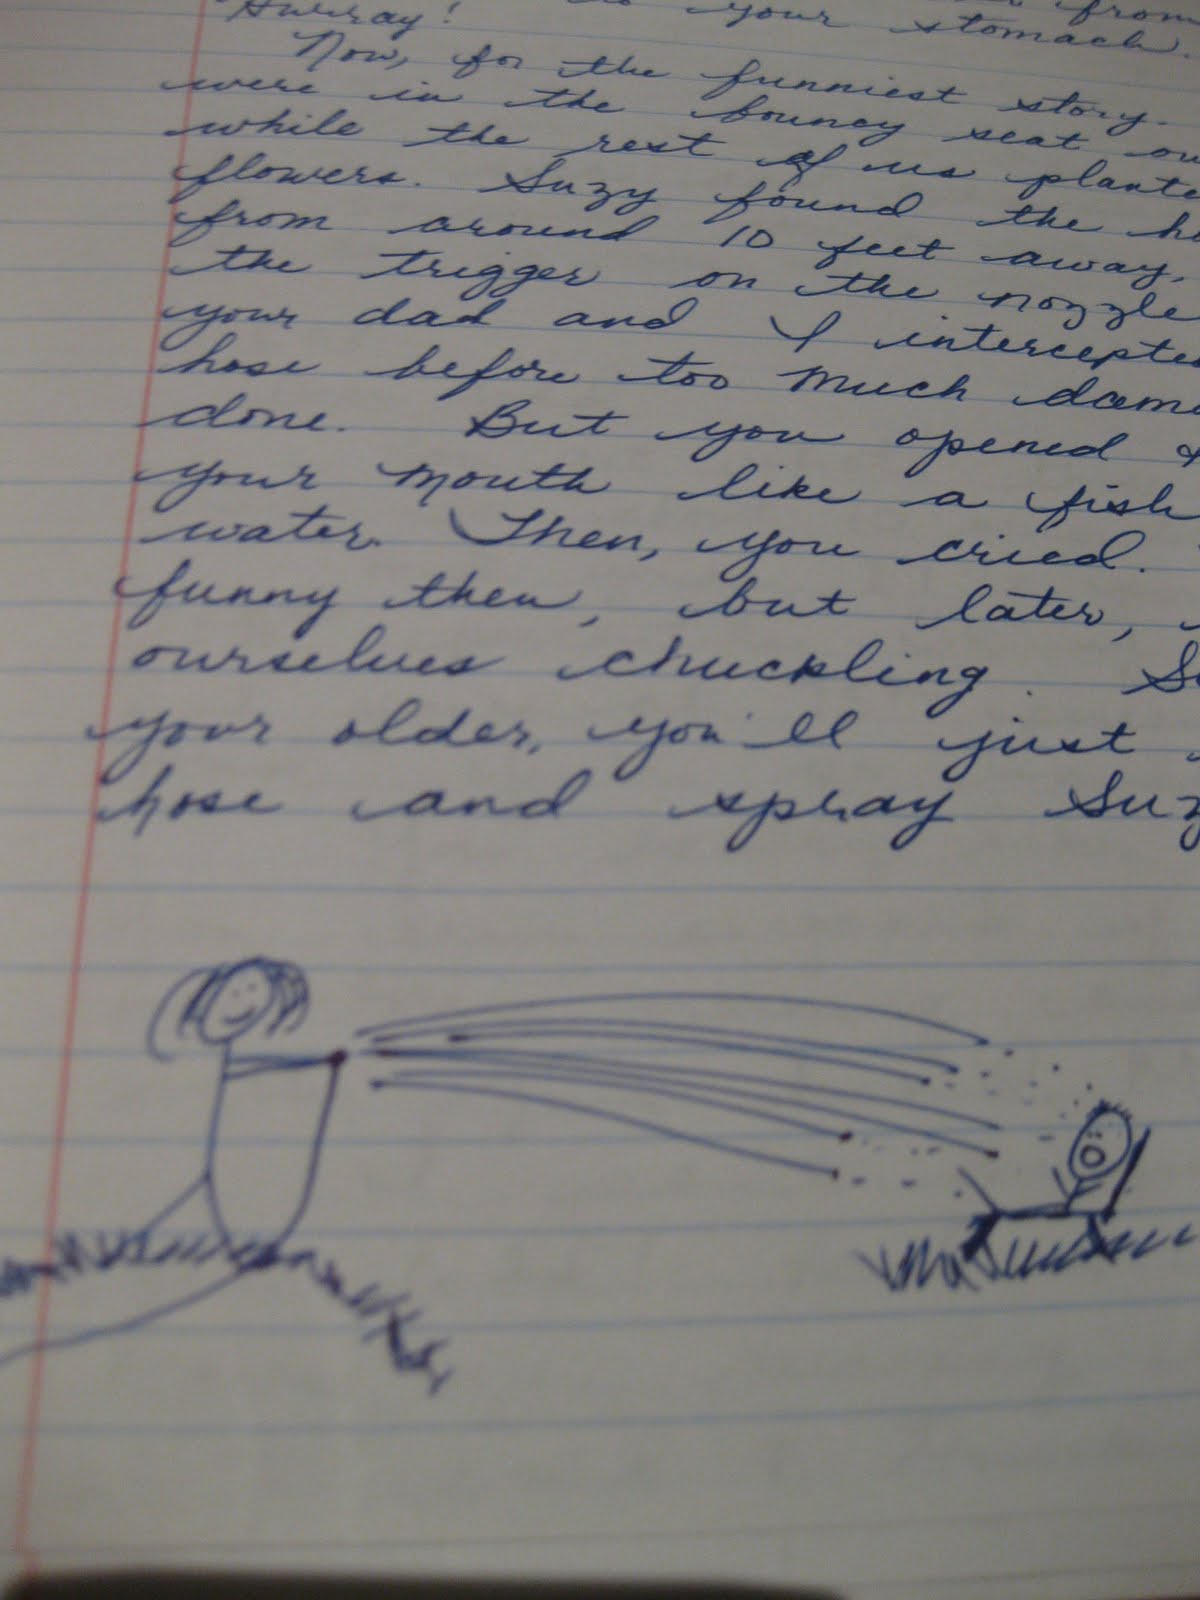 Hurray! to your stomach. from
Now, for the funniest story.
were in the bouncy seat ou
while the rest of us plante
flowers. Suzy found the ho
from around 10 feet away,
the trigger on the nozzle
your dad and I intercepte
hose before too much dama
done. But you opened &
your mouth like a fish
water. Then, you cried.
funny then, but later,
ourselves chuckling. S
your older, you'll just
hose and spray Suz